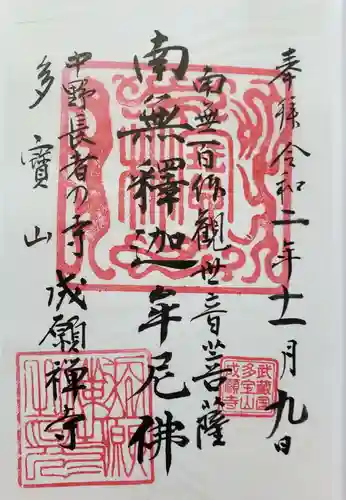 奉拝 令和二年十一月九日
南無百体観世音菩薩
南無釋迦牟尼佛
中野長者の寺 成願禅寺
多寳山
武蔵国
多宝山
成願寺